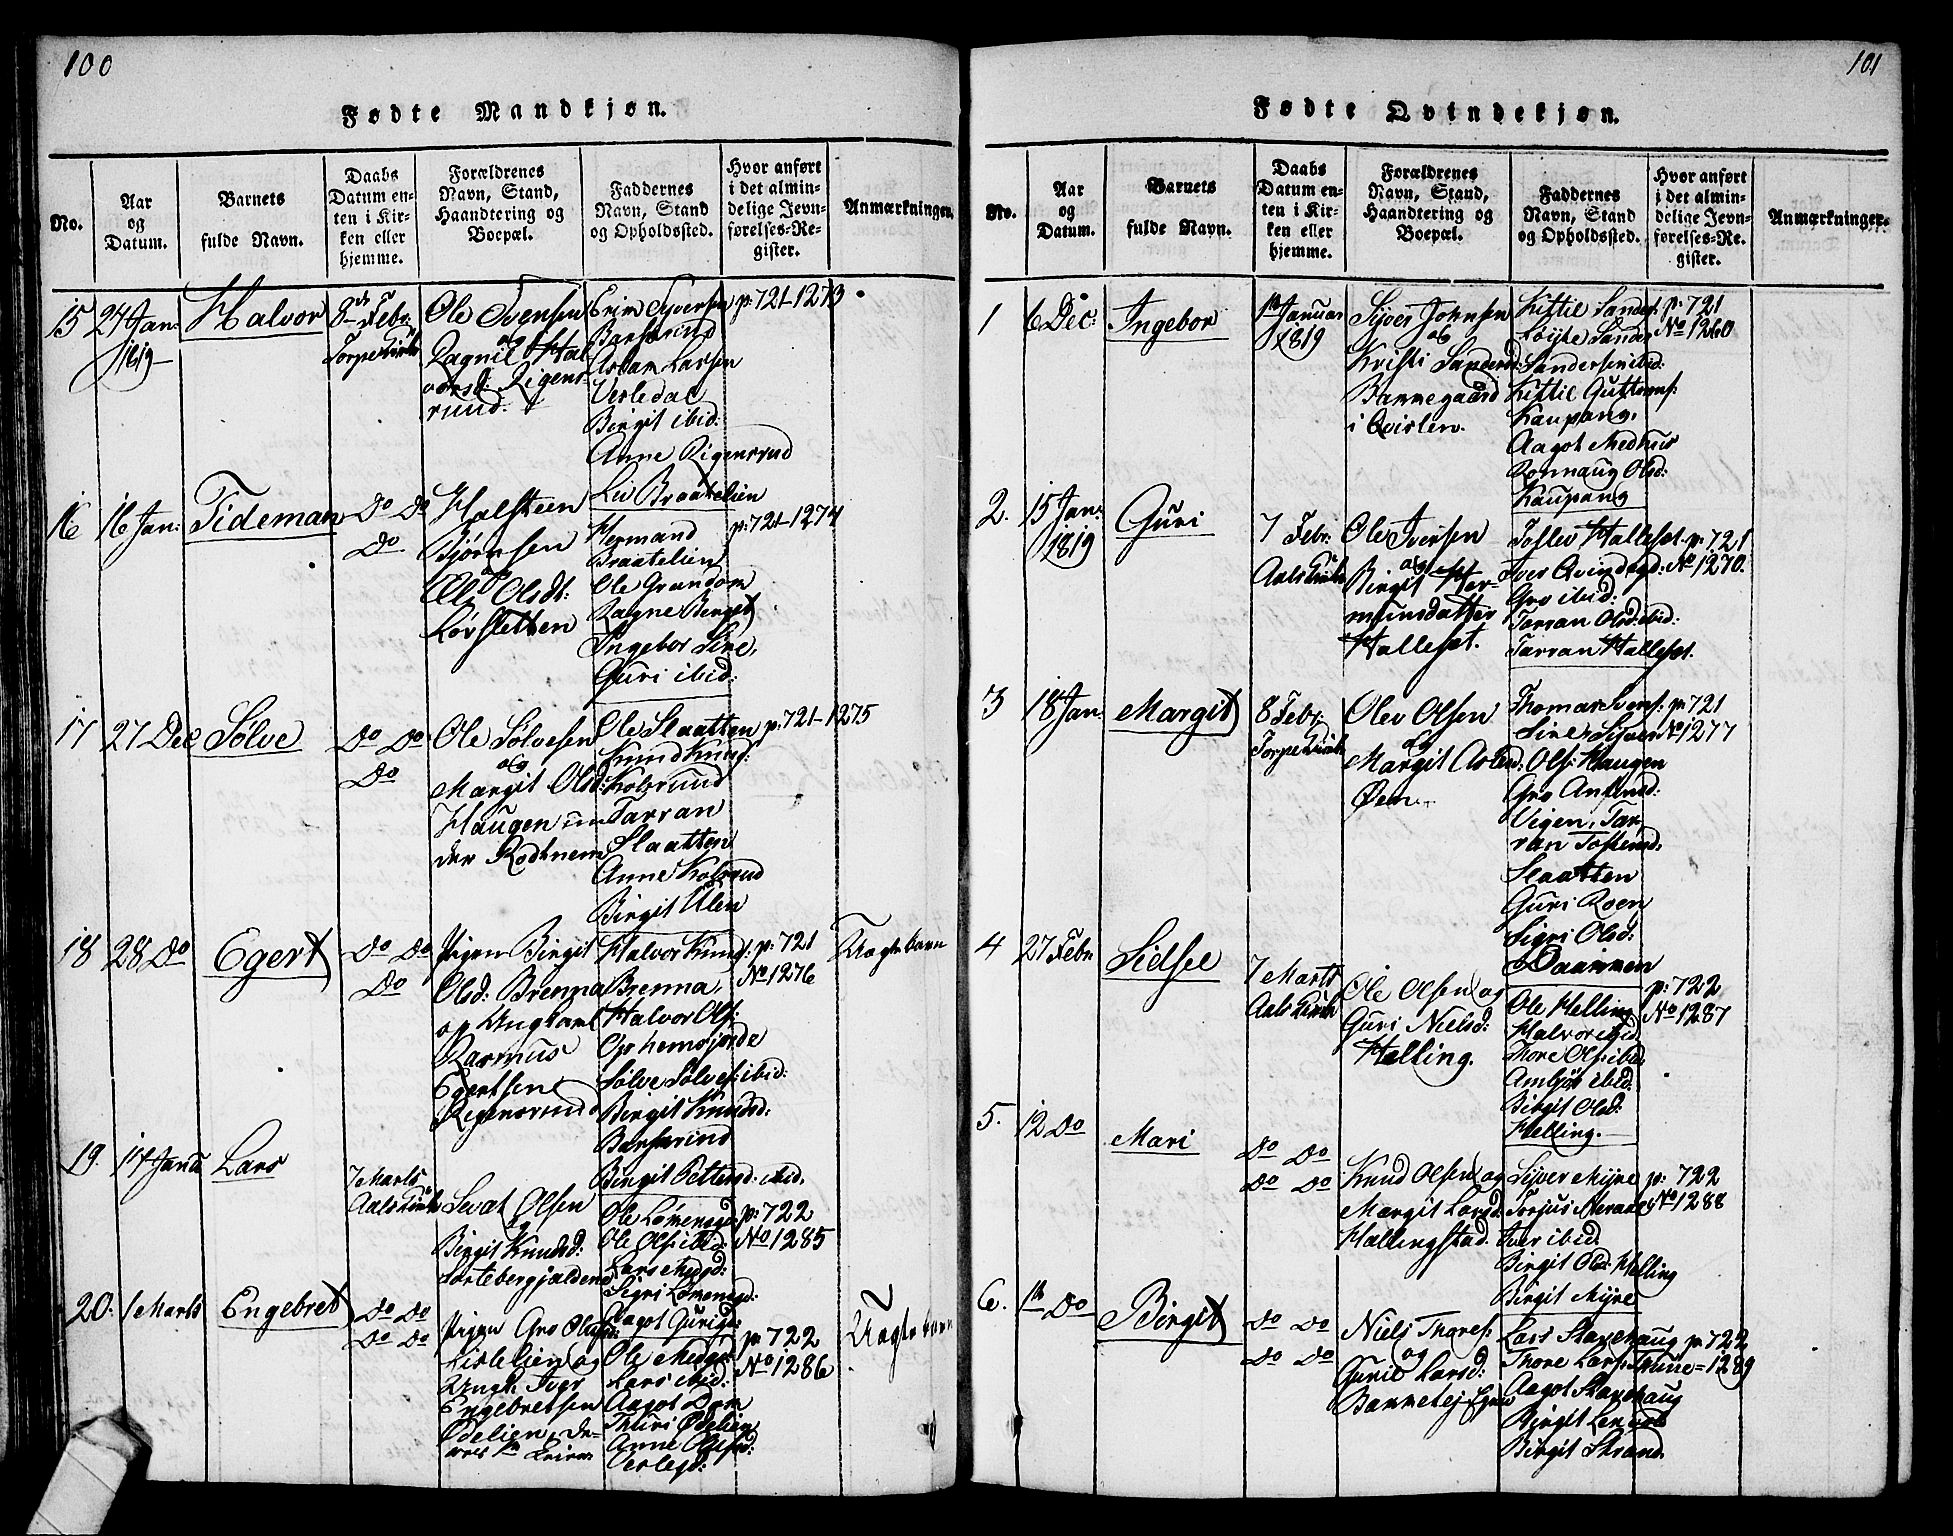 100
Fødte Mandkjøn.
No.
Aar
og
Datum.
Barnets
fulde Navn.
Daabs
Datum en-
ten i Kir-
ken eller
hjemme.
Forældrenes
Navn, Stand,
Haandtering og
Boepæl.
Faddernes
Navn, Stand
og Opholdssted.
Hvor anført
i det almin-
delige Jevn-
førelses-Re-
gister.
Anmærkninger.
15
24 Jan:
1819
Halvor
8de Febr:
Torpe Kirke
Ole Svensen
og
Ragnil Hal
vorsd: Rigens-
rud.
Barskrind
Aslam Larsen
Verledal
Birgit ibid:
Anne Rigensrud
Liv Braatelien
p: 721-1273
16
16 Jan:
Tideman
Do Do
Do
Halsteen
Bjørnsen
og
Olsdt:
Lørsletten
Hermand
Braatelien
Ole Grandom
Ragne Berget
Ingebor Sire,
Guri ibid:
p: 721-1274
17
27 Dec
Sølve
Do Do
Do
Ole Solvesen
og
Margit Olsd:
Haugen un
der Rodhnem
Ole Slaatten
Knud Knuds:
Kolsrud
Tarran
Slaatten
Anne Kolsrud
Birgit Ulen
p: 721-1275
18
28 Do
Egert
Do Do
Do
Pigen Birgit
Olsd: Brenna
og Ungkarl
Rasmus
Egertsen
Rigensrud
Halvor Knuds:
Brenna,
Halvor Ols:
Ophemsjorde
Solve Solves: ibid:
Birgit Knudsd:
Barskrind
Birgit Pettersd: ibid.
p: 721
No 1276
Uagte barn
19.
14 Janu
Lars
7 Marts
Aals Kirke
Sevat Olsen
og
Birgit Knudsd:
Sørtebergjeldene
Ole Lømensgd:
Ole Ols: ibid:
Lars Medgd:
Sigri Lømensgd:
Aagot Gurigd:
p: 722
No 1285
20.
1 Marts
Engebret
Do Do
Do Do
Pigen Gro
Lislelien og
Ungk. Iver
Engebretsen
Ødelien, De-
Ole Medgd:
Lars ibid:
Aagot Dom
Thuri Ødelien
Anne
Verlegd:
p: 722
No 1286
Uagte barn
101
Fødte Qvindekjøn.
No.
Aar
og
Datum.
Barnets
fulde Navn.
Daabs
Datum en-
ten i Kir-
ken eller
hjemme.
Forældrenes
Navn, Stand,
Haandtering og
Boepæl.
Faddernes
Navn, Stand
og Opholdssted.
Hvor anført
i det almin-
delige Jevn-
førelses-Re-
gister.
Anmærkninger.
1
6 Dec:
Ingebor
1ste Januar
1819
Siver Johnsen
og
Kristi Sandersd:
Bammegaard
i Qvislen.
Kittil Sanders:
Sandersen ibid:
Kittil Guttorms:
Kaupang,
Aagot Medhus
Ronnaug Olsd:
Kaupang
p: 721
No 1260
2.
15 Jan:
1819
Guri
7 Febr:
Aals Kirke
Ole Iversen
og
Birgit Her-
munsdatter
Halleset.
Tosten Halleset.
Iver Qvindegd:
Gro ibid:
Tarran Olsd: ibid:
Tarran Halleset.
p: 721
No 1270.
3
18 Jan:
Margit
8 Febr:
Torpe Kirke
Olev Olsen
og
Margit Aslesd:
Øen.
Thomas Svens:
Sire, Siver
Ols: Haugen
Gro
Vigen, Tar-
ran Tostensd:
Slaatten
Guri Roen
Sigri Olsd:
Daammen
p: 721
No 1277
4
27 Febr
Sidsel
7 Marts
Aals Kirke
Ole Olsen og
Guri Nielsd:
Helling.
Ole Helling
Halvor ibid
Thore Ols: ibid
Amljøt ibid:
Birgit Olsd:
Helling.
p: 722
No 1287
5.
12 Do
Mari
Do Do
Do Do
Knud Olsen og
Margit Larsd:
Hallingstad.
Siver Myre
Torjus
Iver ibid.
Birgit Olsd: Helling
Birgit Myre
p: 722
No 1288
6.
1ste Do
Birgit
Do Do
Do Do
Niels Thores:
og
Gurie Larsd:
Lars Stavehaug
Thore Lars: Thune
Aagot Stavehaug
Birgit
Birgit Strand.
p: 722
= 1289